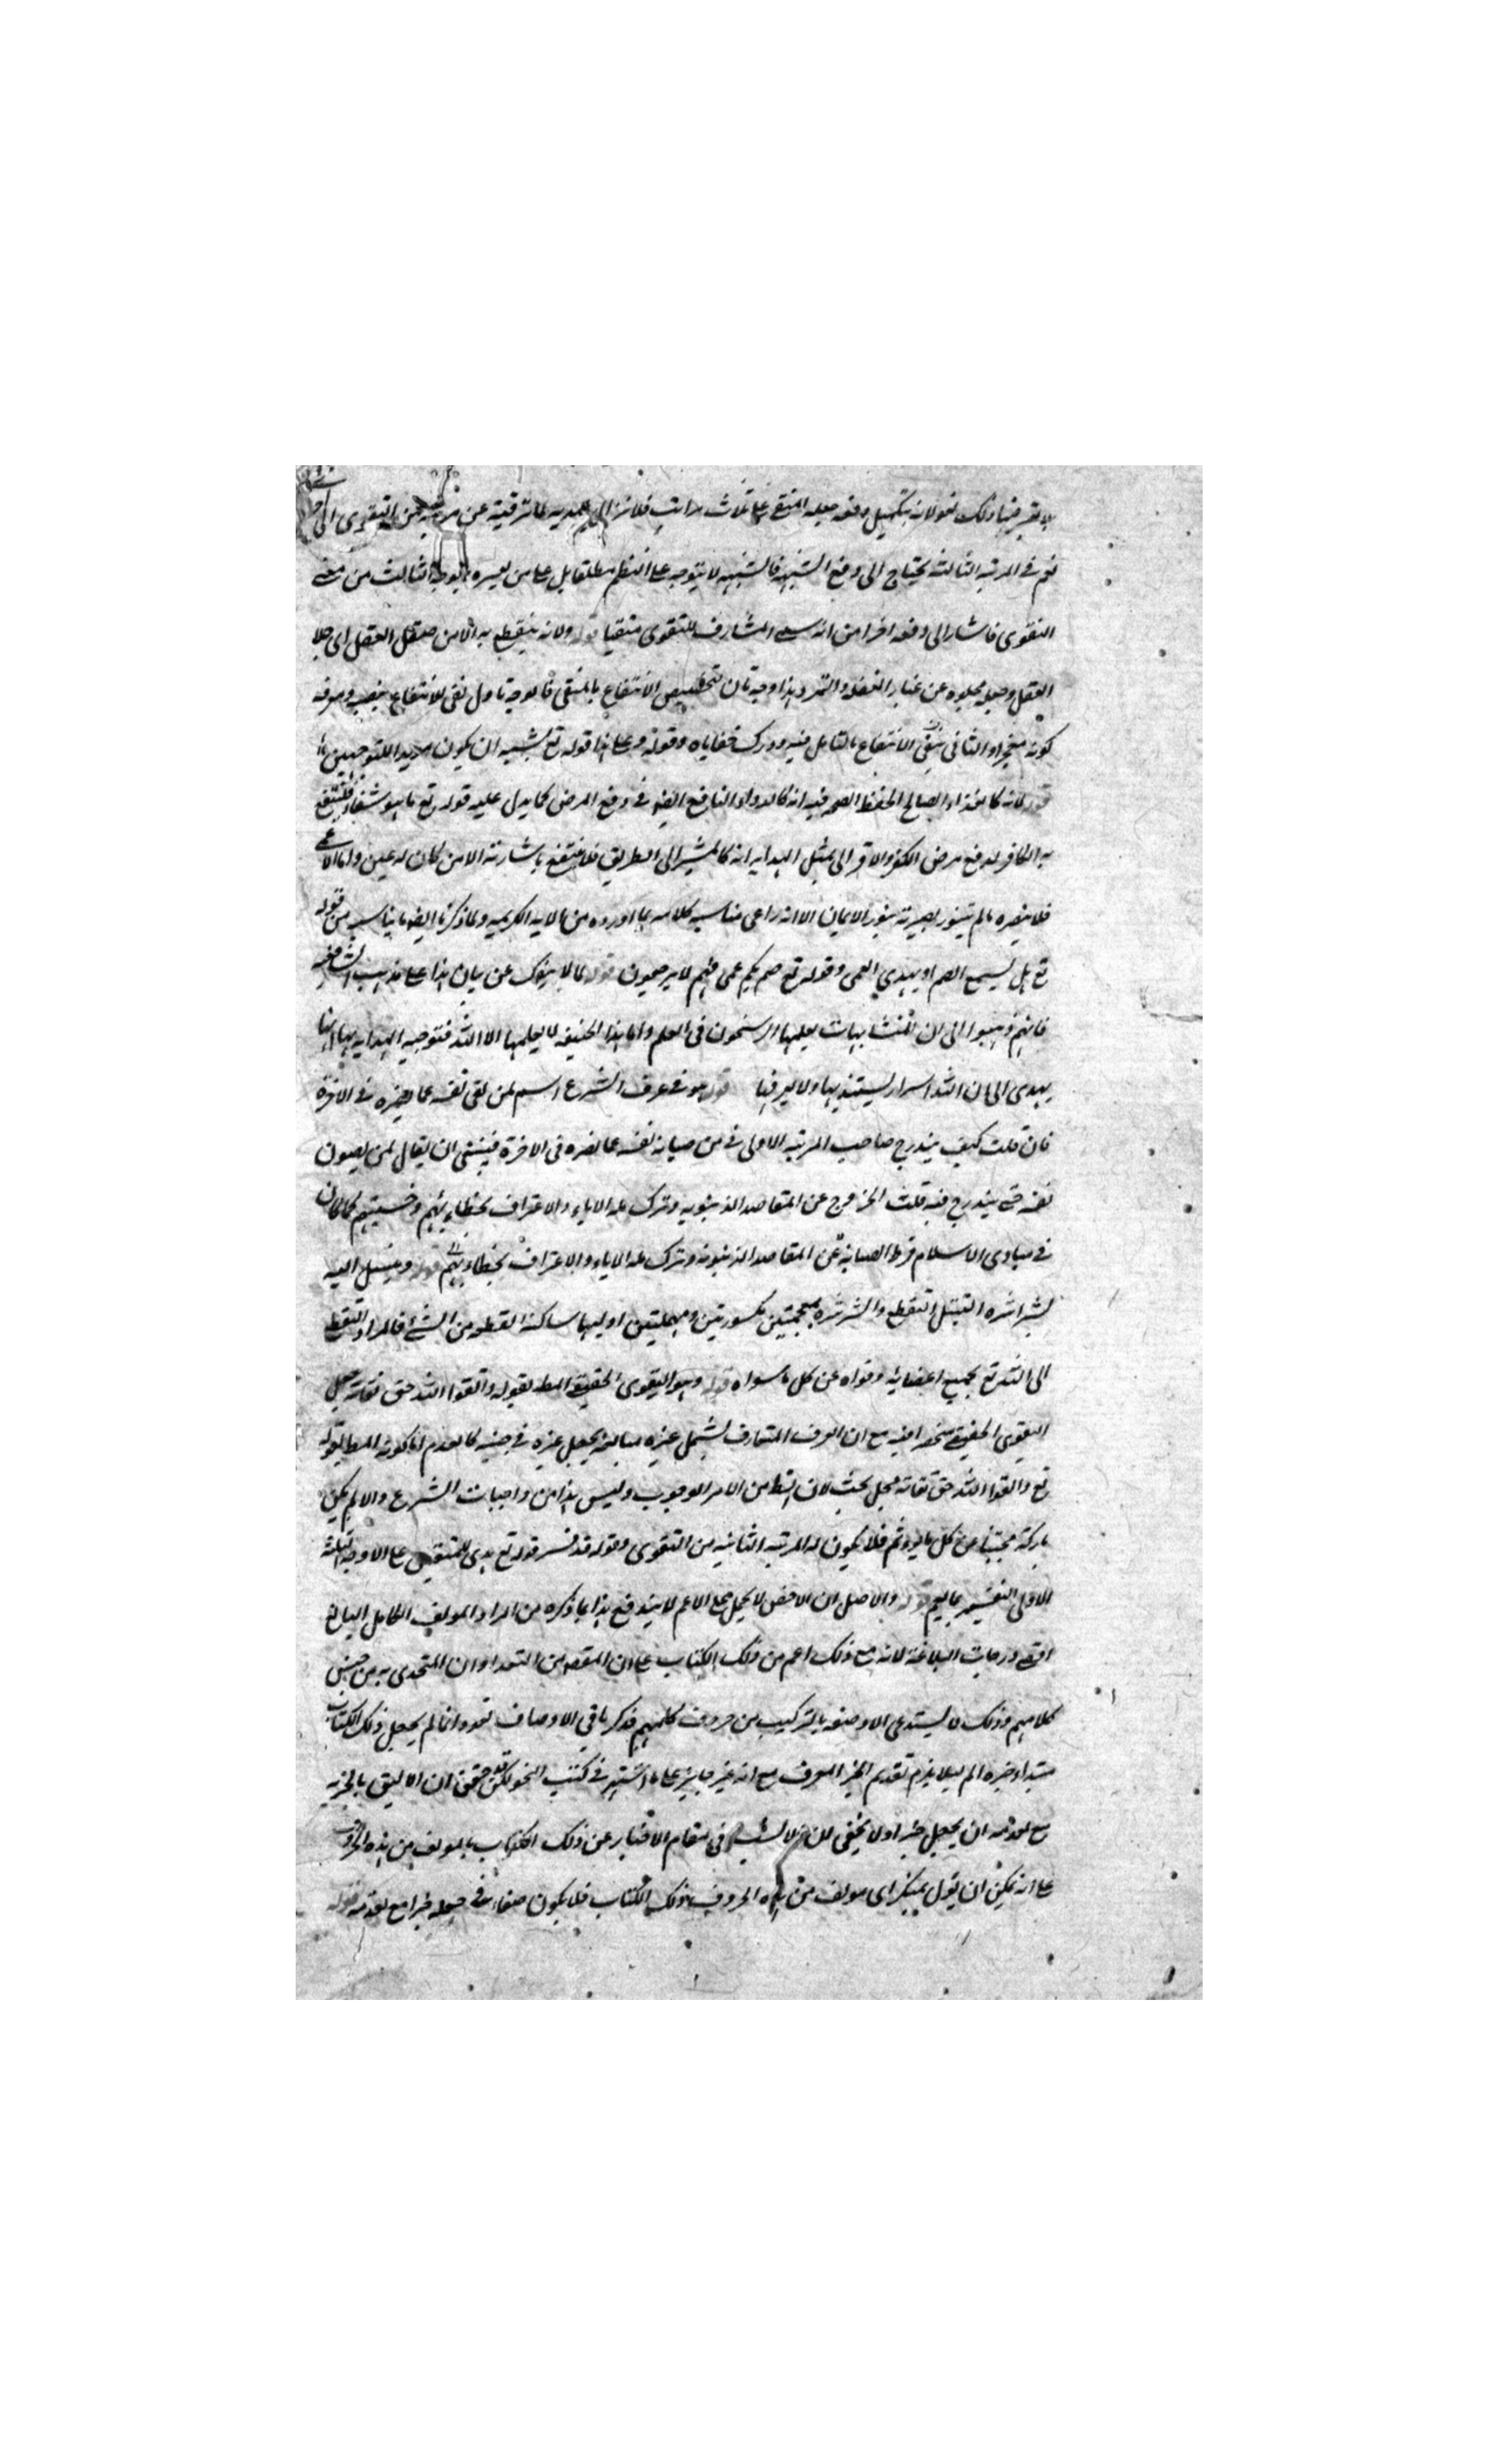 لا تقرر فيها ذلك نعم لانه بتكميل وفقه جعله المتقي على ثلاث مراتب فلانه الهدية لما ترقيه عن مرتبة من التقوى الى
نعم في المرتبة الثالثة يحتاج الى دفع الشبهة فالشبهة لا يتوجه على النظم مطلقا بل على من يفسره بالوجه الثالث من معنى
التقوى فاشار الى دفعه اخرا من انه سمى المشارف للتقوى متقيا قوله ولانه لا ينتفع به الا من صقل العقل اى جلا
العقل وجعله مجلوه عن غبار الغفلة والتمرد هذا وجه ثان لتخصيص الانتفاع بالمتقى فالوجه الاول نفى الانتفاع بنصبه ومعرفة
كونه معجزا والثانى نفى الانتفاع بالتامل فيه ودرك خفاياه وقوله وعلى هذا قوله تع يشبه ان يكون مويدا للتوجيهين
قوله لانه كالغذاء الصالح لحفظ الصحة فيه انه كالدواء النافع ايضا في دفع المرض كما يدل عليه قوله تع ما هو شفاء فينتفع
به الكافر لدفع مرض الكفر والاقرب الى تمثيل الهداية انه كالمشير الى الطريق فلا ينتفع باشارته الا من كان له عين واما الاعمى
فلا ينصره ما لم يتنور بصيرته بنور الايمان الا انه راعى مناسبة كلامه بما اورده من الآية الكريمة ولما ذكرنا ايضا ما يناسبه من قوله
تع هل يسمع الصم او يهدي العمى وقوله تع صم بكم عمى فهم لا يرجعون قوله لما لا ينفك عن بيان هذا على مذهب الشافعية
فانهم ذهبوا الى ان المتشابهات يعلمها الراسخون فى العلم واما هذا الحنيفه لا يعلمها الا الله فتوجيه الهداية بها انها
يهدى الى ان لله اسرار ليستند بها ولا يعرفها قوله هو في عرف الشرع اسم لمن يقى نفسه عما يضره في الاخرة
فان قلت كيف يندرج صاحب المرتبة الاولى في من صيانة نفسه عما يضره فى الاخرة فينبغى ان يقال لمن يصون
نفسه حتى يندرج فيه قلت الخروج عن المقاصد الدنيوية وترك ملة الاباء والاعتراف بخطاءيهم وخستهم لما كان
في مبادى الاسلام فرط الصيانة عن المقاصد الدنيوية وترك ملة الاباء والاعتراف بخطاءيهم قوله ويتبتل اليه
بشراشره التبتل التقطع والشرشره بمعجمتين مكسورتين ومهملتين اوليهما ساكنة القطعه من الشئ فالمراد التقطع
الى الله تع بجميع اعضائه وقواه عن كل ما سواه قوله وهو التقوى الحقيقى المط بقوله واتقوا الله حق تقاته جعل
التقوى الحقيقى منحصرا فيه مع ان العرف المتعارف يشمل غيره مبالغة بجعل غيره في جنبه كالعدم اما كونه المط بقوله
تع واتقوا الله حق تقاته محل بحث لان الظ من الامر الوجوب وليس هذا من واجبات الشرع والا لم يكن
تاركه مجتنبا عن كل ما يوثم فلا يكون له المرتبة الثانية من التقوى وقوله قد فسر قوله تع هدى للمتقين على الاوجه الثلثة
الاولى التفسير بها لهم قوله والاصل ان الاخص لا يحمل على الاعم لا يندفع هذا بما ذكره من المراد المولف الكامل البالغ
اقصى درجات البلاغة لانه مع ذلك اعم من ذلك الكتاب على ان المقص من التعداد ان المتحدى به من جنس
كلامهم وذلك لا يستدعى الا وصفه بالتركيب من حروف كلامهم فذكر باقى الاوصاف تعدد وانما لم يجعل ذلك الكتاب
مبتداء وخبره الم ليلا يلزم تقديم الخبر المعرف مع انه غير جايز على ما اشتهر في كتب النحو لكن حقق ان الاليق بالخبريه
مع تقدمه ان يجعل خبرا ولا يخفى ان الاشبه في مقام الاخبار عن ذلك الكتاب بالمولف من هذه الحروف
على انه يمكن ان يقول بمنكر اى مولف من هذه الحروف ذلك الكتاب فلا يكون خفاء في جعله خبرا مع تقدمه قوله